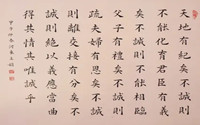 天地有紀矣不誠則
不能化育君臣有義
矣不誠則不能相臨
父子有禮矣不誠則
疏夫婦有恩矣不誠
則離交接有分矣不
誠則絕以義應當曲
得其情其唯誠乎